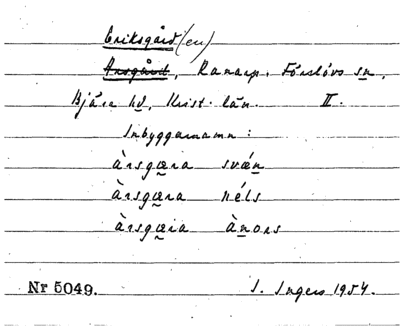 Eriksgård(en)
Arsgård, Ranarp. Förslövs sn,
Bjäre hd, Krist. län. II.
Inbyggarnamn:
àrsgæra svæ̀n
àrsgæra néls
àrsgæra ànors
Nr 5049. I. Ingers 1954.